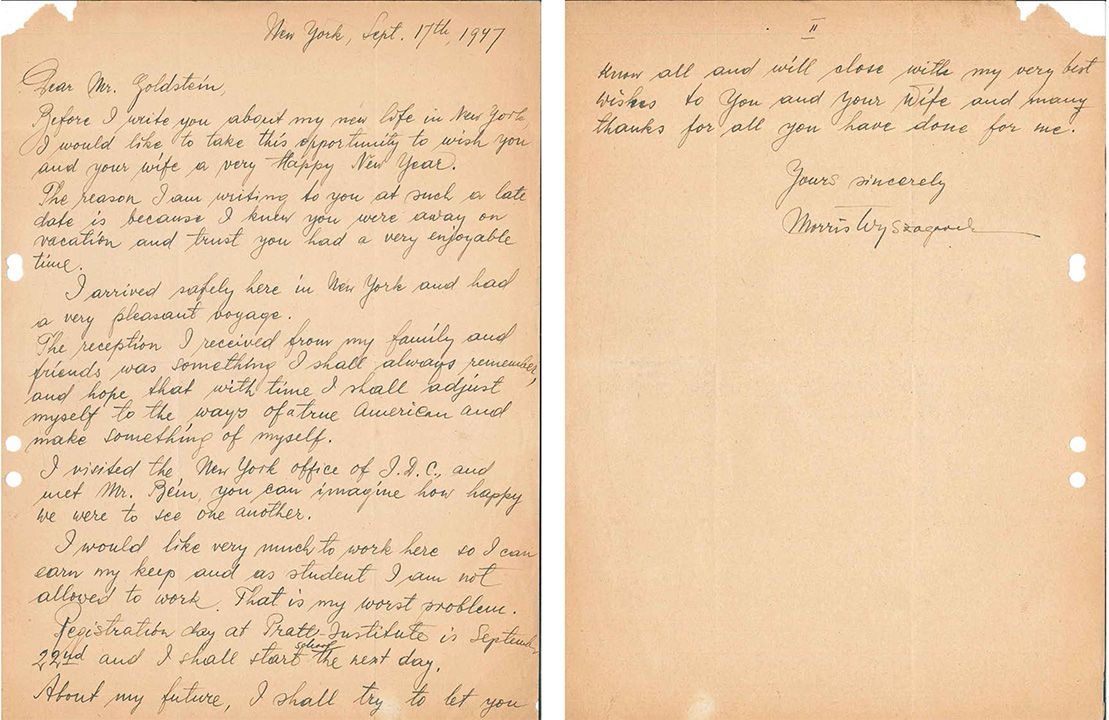 New York, Sept. 17th, 1947
Dear Mr. Goldstein,
Before I write you about my new life in New York,
I would like to take this opportunity to wish you
and your wife a very Happy New Year.
The reason I am writing to you at such a late
date is because I knew you were away on
vacation and trust you had a very enjoyable
time.
I arrived safely here in New York and had
a very pleasant voyage.
The reception I received from my family and
friends was something I shall always remember,
and hope that with time I shall adjust
myself to the ways of a true American and
make something of myself.
I visited the New York office of J.D.C., and
met Mr. Bein, you can imagine how happy
we were to see one another.
I would like very much to work here so I can
earn my keep and as student I am not
allowed to work. That is my worst problem.
Registration day at Pratt-Institute is September
22nd and I shall start school the next day.
About my future, I shall try to let you
II
know all and will close with my very best
wishes to You and Your Wife and many
thanks for all you have done for me.
Yours sincerely
Morris Wyszogrod